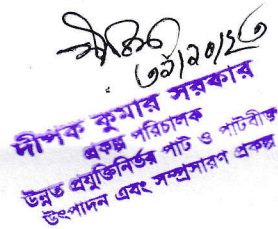 ৩১/১০/২৩
দীপক কুমার সরকার
প্রকল্প পরিচালক
উন্নত প্রযুক্তিনির্ভর পাট ও পাটবীজ
উৎপাদন এবং সম্প্রসারণ প্রকল্প